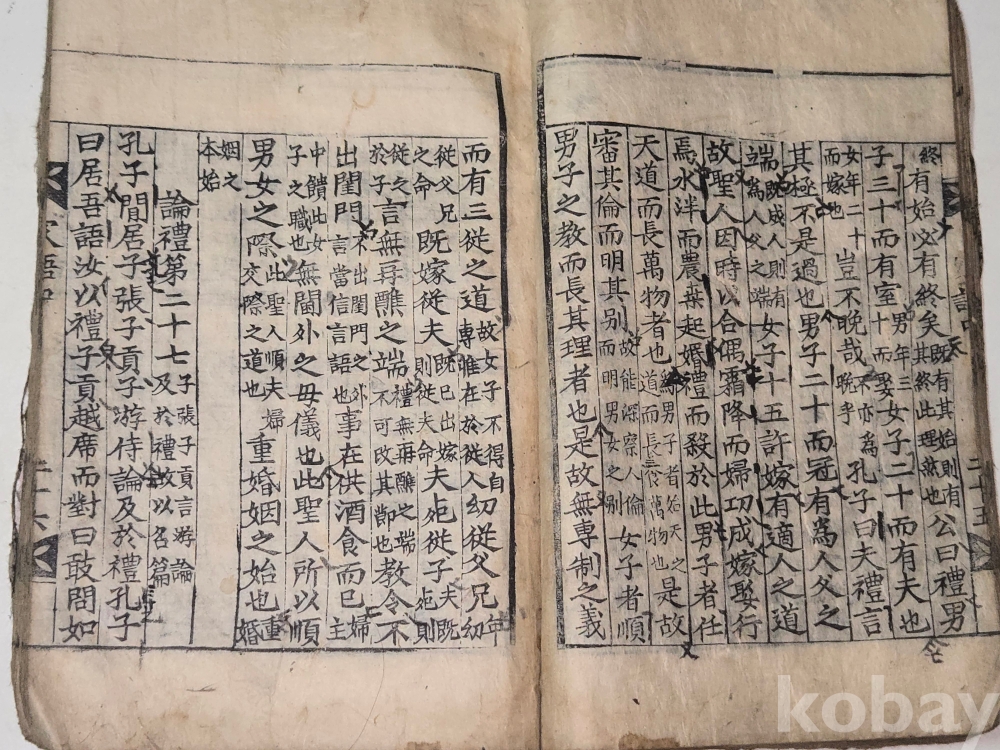 終有始必有終矣既有其始則有其終終此理然也公曰禮男
子三十而有室男年三十而娶女子二十而有夫也
女年二十而嫁也豈不晚哉不亦為晚乎孔子曰夫禮言
其極不是過也男子二十而冠有為人父之
端既成人則有為人父之端女子十五許嫁有適人之道
故聖人因時以合偶霜降而婦功成嫁娶行
焉氷泮而農桒起婚禮而殺於此男子者任
天道而長萬物者也為男子者若天之道而長養萬物也是故
審其倫而明其别故能深察人倫而明男女之别女子者順
男子之教而長其理者也是故無専制之義
二十五
而有三從之道故女子不得自専惟在於從人幼從父兄年幼
從父兄之命既嫁從夫既已出嫁則從夫命夫死從子夫既死則
從之於子言無再醮之端禮無再醮之端不可改其節也教令不
出閨門不出閨門之外言當信言語也事在供酒食而已婦主
中饋此女子之職也無閫外之毋儀也此聖人所以順
男女之際此聖人順夫婦交際之道也重婚姻之始也重婚
姻之本始
論禮第二十七子張子貢言游論及於禮故以名篇
孔子閒居子張子貢子游侍論及於禮孔子
曰居吾語汝以禮子貢越席而對曰敢問如
家語中
二十六
kobay